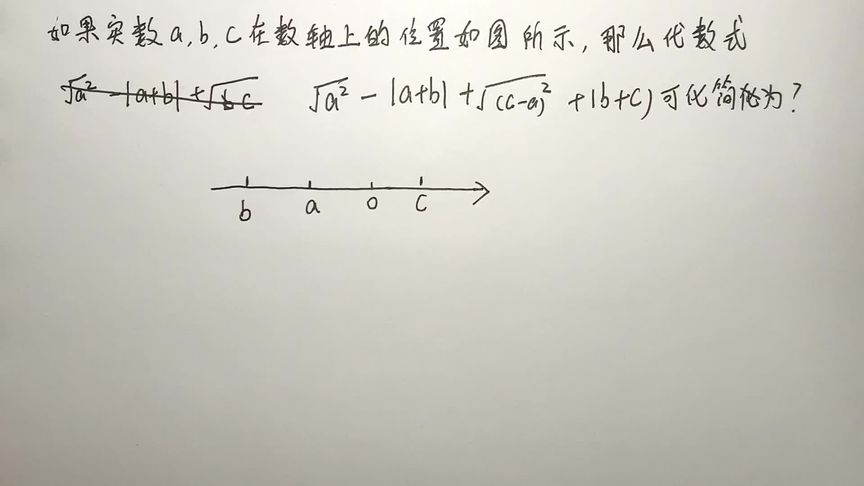 如果实数a,b,c在数轴上的位置如图所示,那么代数式
√a² - |a+b| + √(c-a)² + |b+c| 可化简为?
b a 0 c